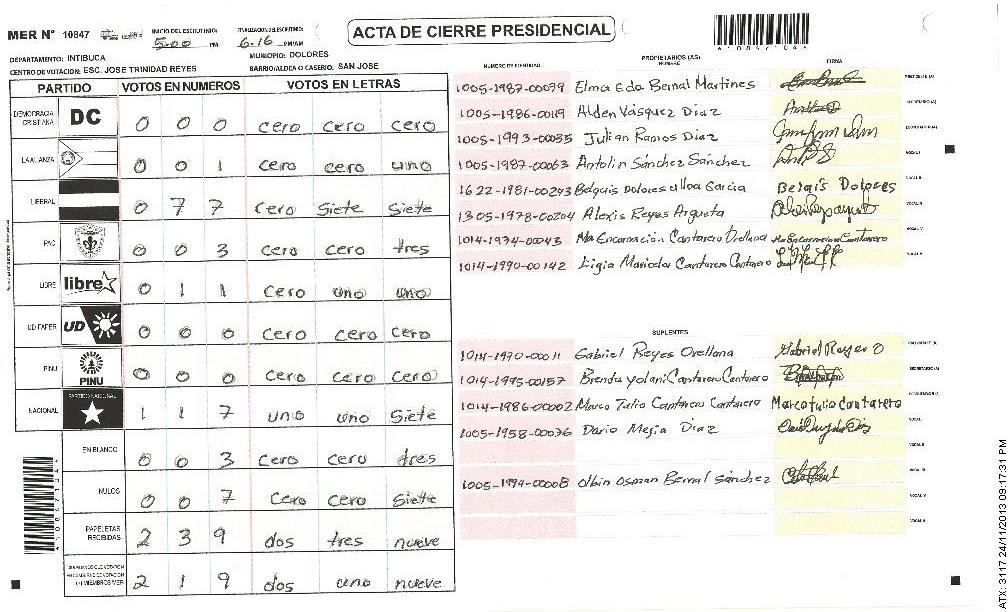 MER N° 10847
INICIO DEL ESCRUTINIO:
5:00 PM
FINALIZACION DEL ESCRUTINIO:
6:16 PM/AM
ACTA DE CIERRE PRESIDENCIAL
DEPARTAMENTO: INTIBUCA
MUNICIPIO: DOLORES
CENTRO DE VOTACION: ESC. JOSE TRINIDAD REYES
BARRIO/ALDEA O CASERIO: SAN JOSE
PARTIDO VOTOS EN NUMEROS VOTOS EN LETRAS
DEMOCRACIA CRISTIANA DC 0 0 0 cero cero cero
LA ALIANZA 0 0 1 cero cero uno
LIBERAL 0 7 7 cero Siete Siete
PAC 0 0 3 cero cero tres
LIBRE libre 0 1 1 cero uno uno
UD FAPER UD 0 0 0 cero cero cero
PINU PINU 0 0 0 cero cero cero
NACIONAL PARTIDO NACIONAL 1 1 7 uno uno Siete
EN BLANCO 0 0 3 cero cero tres
NULOS 0 0 7 cero cero Siete
PAPELETAS RECIBIDAS 2 3 9 dos tres nueve
CIUDADANOS QUE VOTARON EN CUADERNO DE VOTACION (+) MIEMBROS MER 2 1 9 dos uno nueve
NUMERO DE IDENTIDAD PROPIETARIOS (AS): NOMBRE FIRMA
1005-1987-00079 Elma Edo Bernal Martines PRESIDENTE (A)
1005-1986-00119 Alden Vásquez Diaz SECRETARIO (A)
1005-1993-00035 Julian Ramos Diaz ESCRUTADOR (A)
1005-1987-00063 Antolin Sánchez Sánchez VOCAL I
1622-1981-00293 Belquis Dolores ulloa Garcia Belquis Dolores VOCAL II
1305-1978-00204 Alexis Reyes Argueta VOCAL III
1014-1974-00043 Ma Encarnación Cantarero Orellana Ma Encarnacion Cantarero VOCAL IV
1014-1990-00142 Ligia Maricela Cantarero Cantarero VOCAL V
SUPLENTES
1014-1970-00011 Gabriel Reyes Orellana Gabriel Reyes O PRESIDENTE (A)
1014-1995-00157 Brenda yolani Cantarero Cantarero SECRETARIO (A)
1014-1986-00002 Marco Tulio Cantarero Cantarero Marco tulio Cantarero ESCRUTADOR (A)
1005-1958-00036 Dario Mejia Diaz VOCAL I
VOCAL II
1005-1994-00008 Olbin Osman Bernal Sánchez VOCAL III
VOCAL IV
VOCAL V
ATX: 3117 24/11/2013 09:17:31 PM